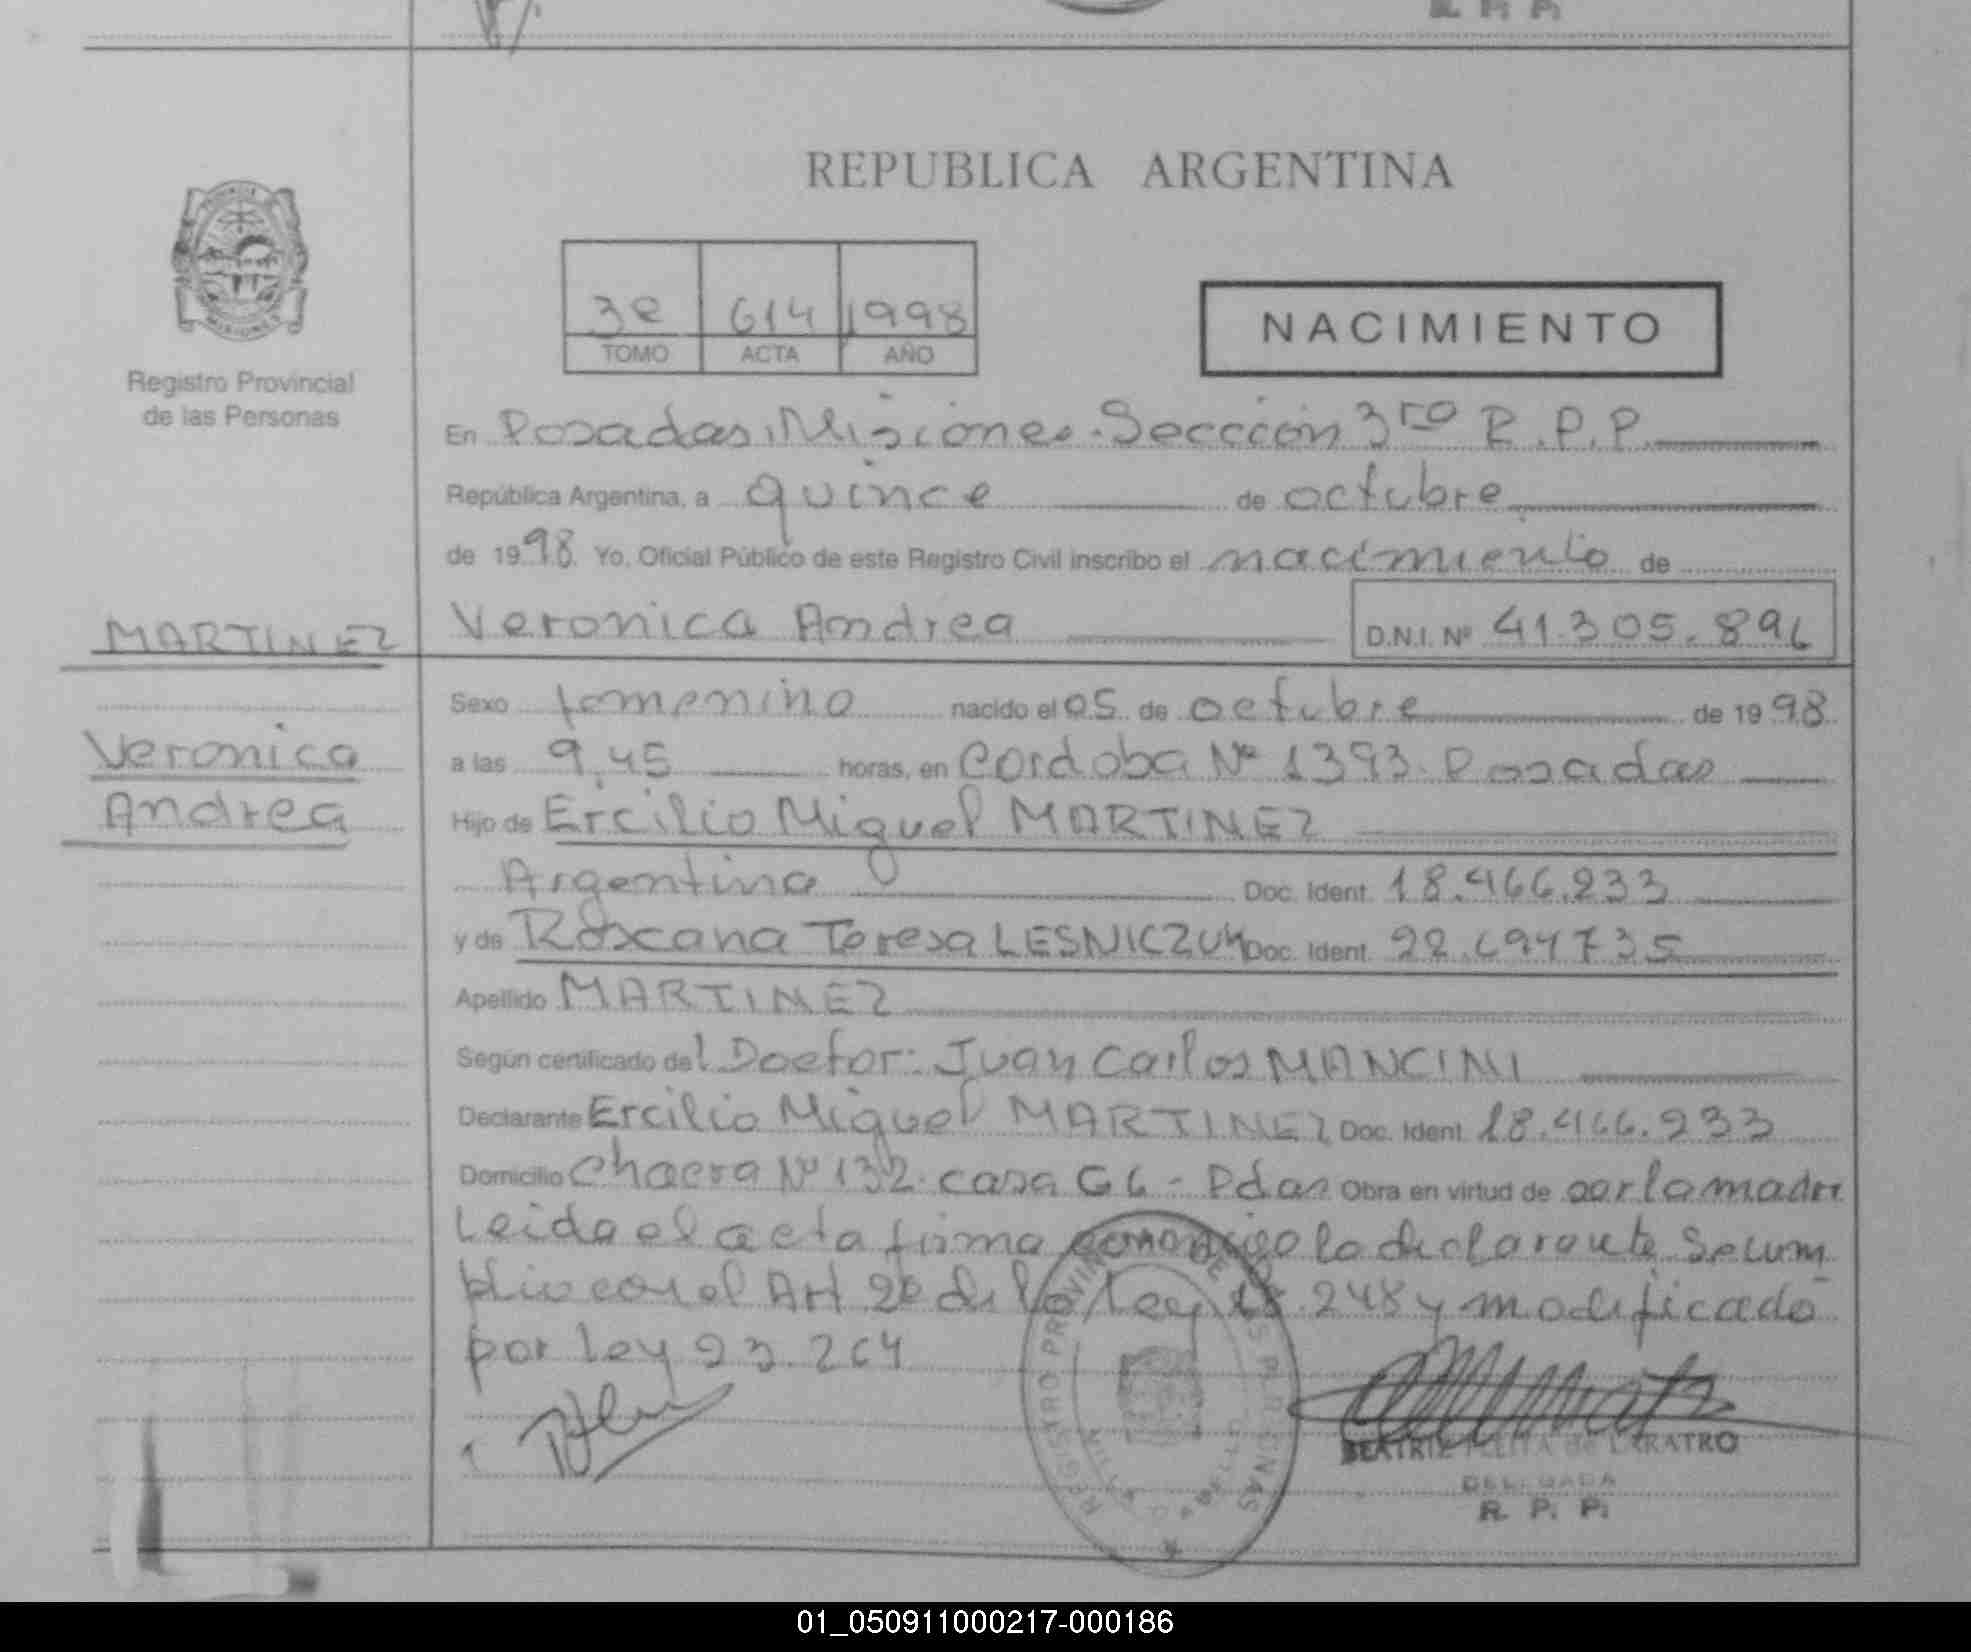 R. P. P.
REPUBLICA ARGENTINA
MISIONES
Registro Provincial
de las Personas
3e 614 1998
TOMO ACTA AÑO
NACIMIENTO
En Posadas, Misiones. Sección 3ro R.P.P.
República Argentina, a quince de octubre
de 1998. Yo, Oficial Público de este Registro Civil inscribo el nacimiento de
MARTINEZ
Veronica Andrea D.N.I. Nº 41.305.896
Sexo femenino nacido el 05 de octubre de 1998
Veronica
Andrea
a las 9,45 horas, en Cordoba Nº 1393. Posadas
Hijo de Ercilio Miguel MARTINEZ
Argentina Doc. Ident. 18.466.233
y de Roxana Teresa LESNICZUK Doc. Ident. 22.694735
Apellido MARTINEZ
Según certificado del Doctor: Juan Carlos MANCINI
Declarante Ercilio Miguel MARTINEZ Doc. Ident. 18.466.233
Domicilio Chacra Nº 132. casa G6 - Pdas Obra en virtud de
Leida el acta firma la declarante. Se cum
plio con el Art 2º de la Ley 18.248 y modificado
por Ley 23.264
REGISTRO PROVINCIAL DE LAS PERSONAS
BEATRIZ de LARATRO
DELEGADA
R. P. P.
01_050911000217-000186